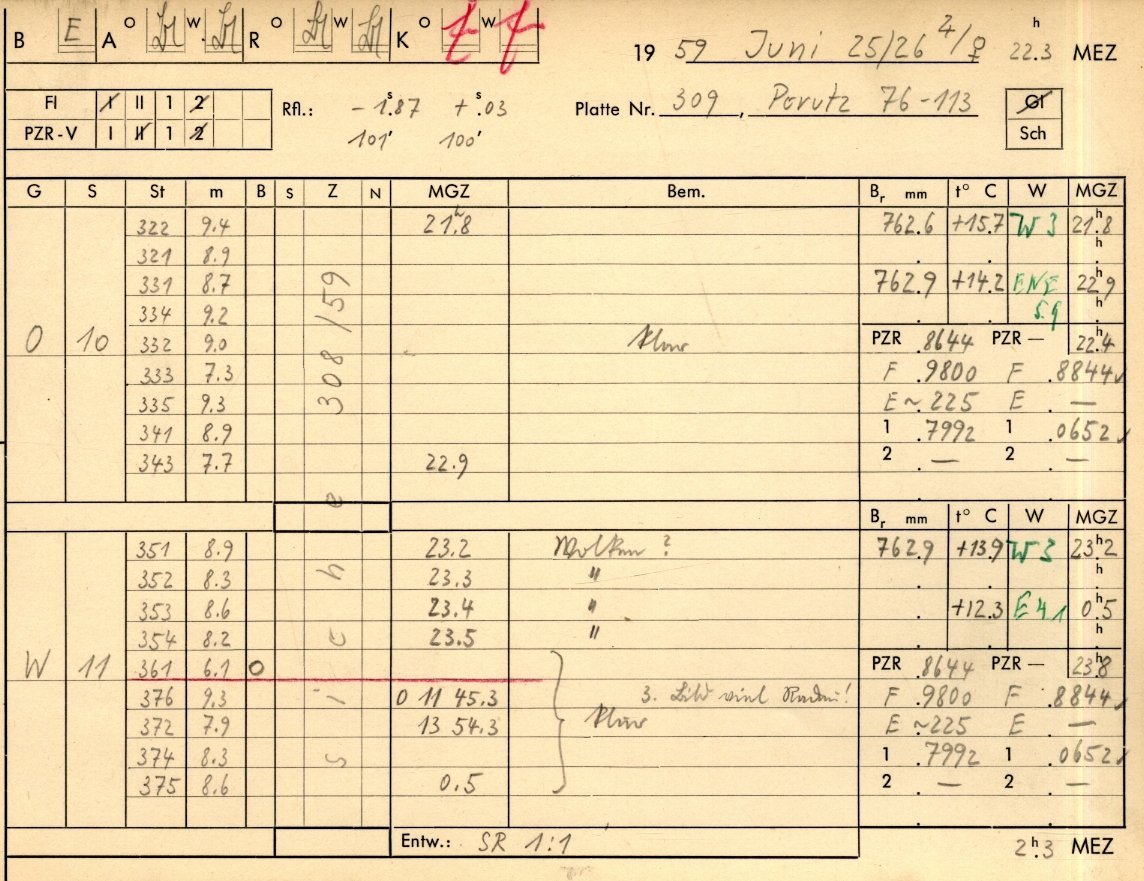 B E A O W. R O W K O W f f
19 59 Juni 25/26 ♃/♀ 22.3 h MEZ
FI I II 1 2 Rfl.: - 1.87 s + .03 s Platte Nr. 309, Perutz 76-113 Gl
PZR-V I II 1 2 101' 100' Sch
G S St m B S Z N MGZ Bem. Br mm t° C W MGZ
322 9.4 21.8 h 762.6 +15.7 W 3 21.8 h
321 8.9
331 8.7 762.9 +14.2 ENE 22.9 h
334 9.2 5.9
O 10 332 9.0 308/59 klar PZR .8644 PZR — 22.4 h
333 7.3 F .9800 F .8844
335 9.3 E ~ 225 E . —
341 8.9 1 .7992 1 .0652
343 7.7 22.9 2 . — 2 . —
Br mm t° C W MGZ
351 8.9 23.2 Wolken ? 762.9 +13.9 W 3 23.2 h
352 8.3 23.3 "
353 8.6 23.4 " +12.3 E 4 1 0.5 h
354 8.2 23.5 "
W 11 361 6.1 O siehe PZR .8644 PZR — 23.8 h
376 9.3 0 11 45.3 3. Bild viel F .9800 F .8844
372 7.9 13 54.3 klar E ~225 E . —
374 8.3 1 .7992 1 .0652
375 8.6 0.5 2 . — 2 . —
Entw.: SR 1:1 2.3 h MEZ